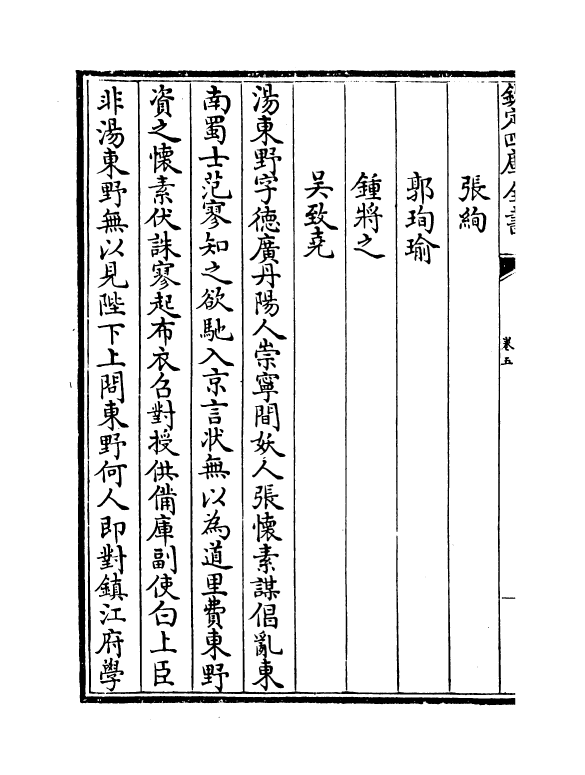 欽定四庫全書
卷五
張絢
郭珣瑜
鍾將之
吴致堯
湯東野字德廣丹陽人崇寧間妖人張懷素謀倡亂東
南蜀士范寥知之欲馳入京言状無以為道里費東野
資之懷素伏誅寥起布衣召對授供備庫副使白上臣
非湯東野無以見陛下上問東野何人即對鎮江府學